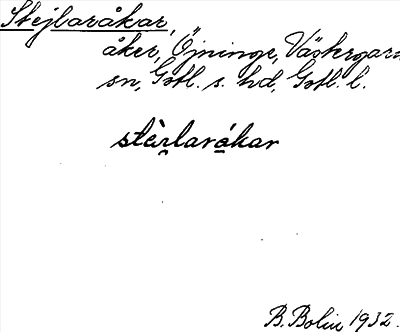 Stejlaråkar,
åker, Öjninge, Västergarn
sn, Gotl. s. hd, Gotl. l.
stèi̯larå̀kar
B. Bolin 1932.